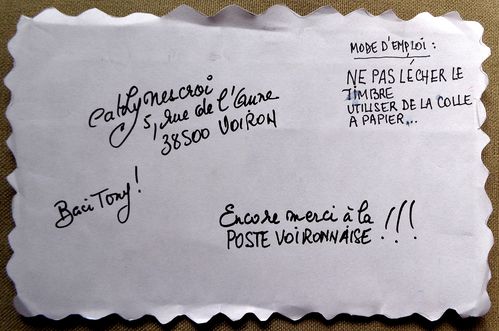 MODE D'EMPLOI :
NE PAS LÉCHER LE
TIMBRE
UTILISER DE LA COLLE
A PAPIER...
Cathy Nescroi
5, rue de l'Eure
38500 VOIRON
Baci Tony !
Encore merci à la
POSTE VOIRONNAISE !!!